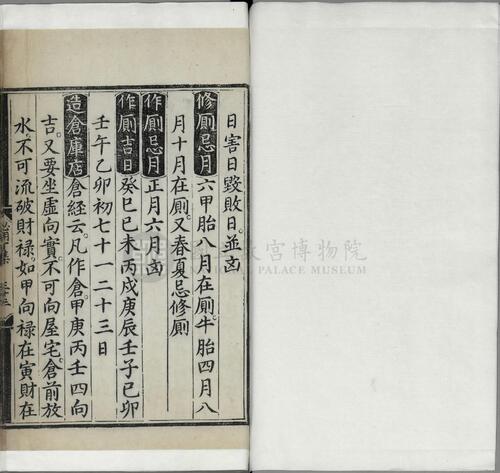 日害日毀敗日並凶
修厠忌月六甲胎八月在厠牛胎四月八
月十月在厠又春夏忌修厠
作厠忌月正月六月凶
作厠吉日癸巳己未丙戌庚辰壬子己卯
壬午乙卯初七十一二十三日
造倉庫店倉經云凡作倉甲庚丙壬四向
吉又要坐虛向實不可向屋宅倉前放
水不可流破財禄如甲向禄在寅財在
國立故宮博物院
NATIONAL PALACE MUSEUM